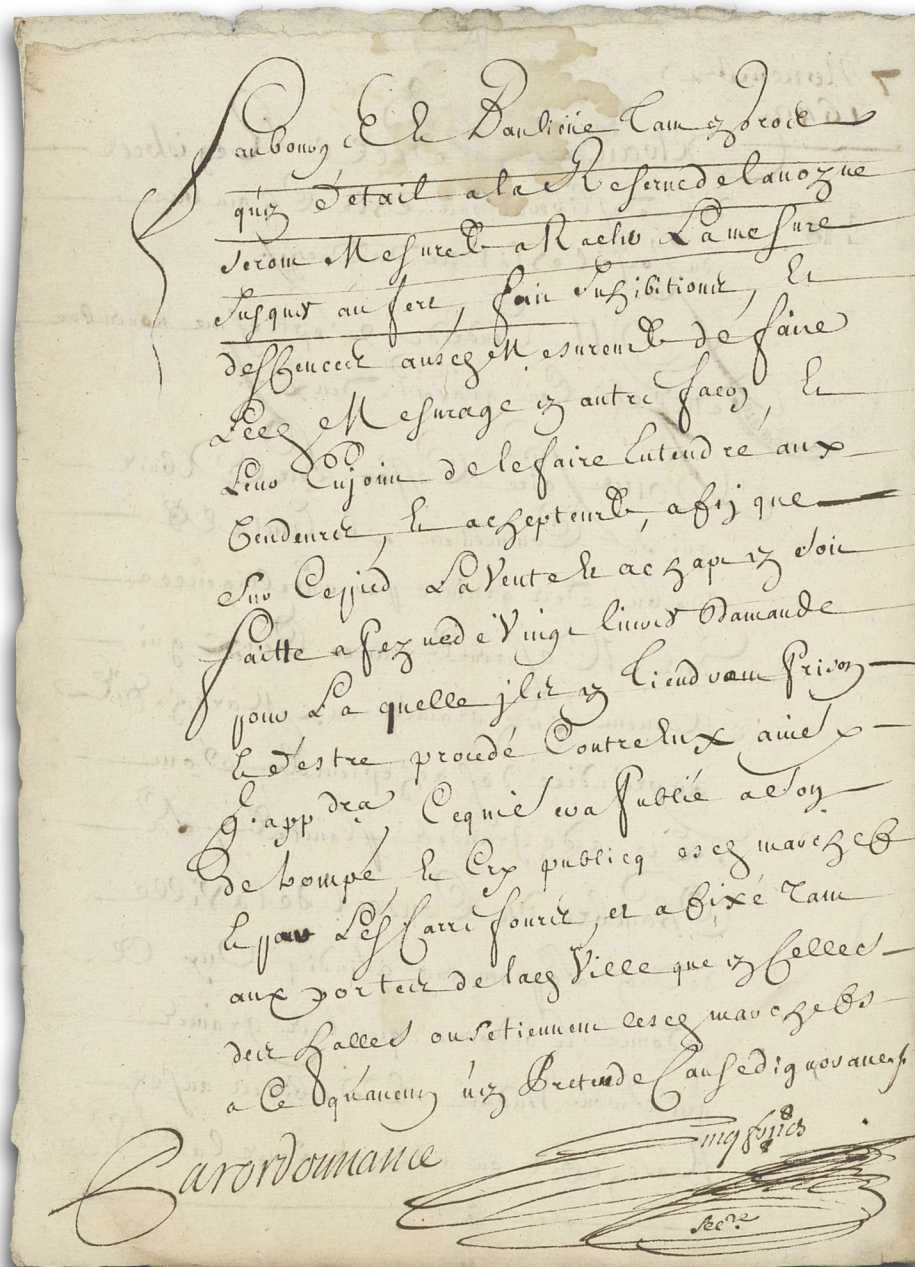 faubourg Et la Banlieüe Tam en groce
qu'en détail a la Reserue de lauoyne
seront Mesurez a Racler La mesure
Jusques au fert, fait Inhibitions, et
deffences ausd Mesureurs de faire
Led Mesurage en autre facon, et
Leur Enjoint de le faire Entendre aux
Vendeurs, et achepteurs, afin que
Sur Ce pied La Vente et achapt en soit
faitte a peyne de Vingt liures Damande
pour La quelle ils en tiendront Prison
Et d'estre procedé Contre Eux ainsÿ
q. appdra, Ce qui sera Publié a Son
de trompe, et Cry publicq esd marchez
et par Les Carrefours, et affixé Tant
aux portes de lad Ville que en Celles
des halles ou se tiennent lesd marchez
a Ce qu'aucun n'en Pretende Cause dignorance
Par ordonnance
Secre